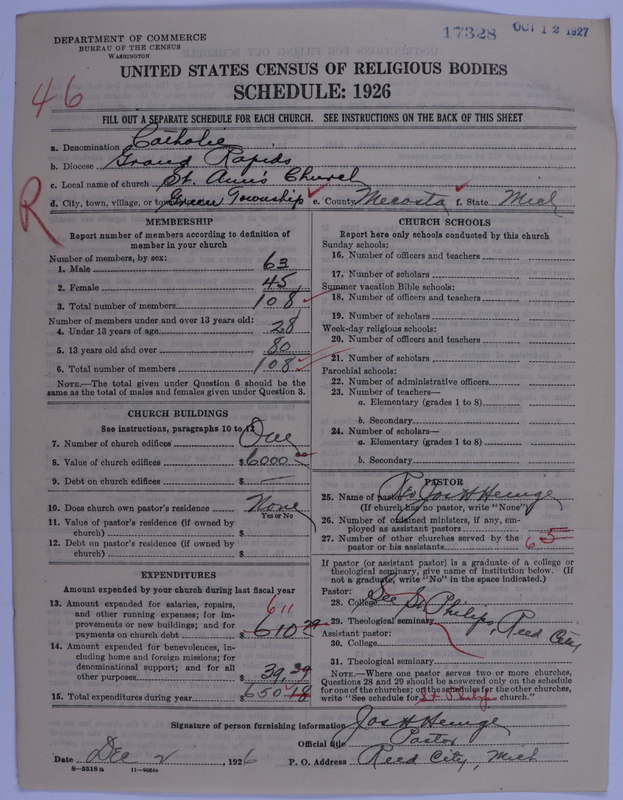 17328 OCT 12 1927
DEPARTMENT OF COMMERCE
BUREAU OF THE CENSUS
WASHINGTON
UNITED STATES CENSUS OF RELIGIOUS BODIES
46
SCHEDULE: 1926
FILL OUT A SEPARATE SCHEDULE FOR EACH CHURCH. SEE INSTRUCTIONS ON THE BACK OF THIS SHEET
a. Denomination Catholic
b. Diocese Grand Rapids
c. Local name of church St. Ann's Church
R
d. City, town, village, or Green Township e. County Mecosta f. State Mich
MEMBERSHIP
Report number of members according to definition of
member in your church
Number of members, by sex:
1. Male 63
2. Female 45
3. Total number of members 108
Number of members under and over 13 years old:
4. Under 13 years of age 28
5. 13 years old and over 80
6. Total number of members 108
NOTE.—The total given under Question 6 should be the
same as the total of males and females given under Question 3.
CHURCH BUILDINGS
See instructions, paragraphs 10 to 12
7. Number of church edifices One
8. Value of church edifices $6000 00
9. Debt on church edifices $ —
10. Does church own pastor's residence None
Yes or No
11. Value of pastor's residence (if owned by
church) $
12. Debt on pastor's residence (if owned by
church) $
EXPENDITURES
Amount expended by your church during last fiscal year
13. Amount expended for salaries, repairs,
and other running expenses; for im-
provements or new buildings; and for
payments on church debt 611
$ 610
14. Amount expended for benevolences, in-
cluding home and foreign missions; for
denominational support; and for all
other purposes $ 39.39
15. Total expenditures during year $ 650
CHURCH SCHOOLS
Report here only schools conducted by this church
Sunday schools:
16. Number of officers and teachers
17. Number of scholars
Summer vacation Bible schools:
18. Number of officers and teachers
19. Number of scholars
Week-day religious schools:
20. Number of officers and teachers
21. Number of scholars
Parochial schools:
22. Number of administrative officers
23. Number of teachers—
a. Elementary (grades 1 to 8)
b. Secondary
24. Number of scholars—
a. Elementary (grades 1 to 8)
b. Secondary
PASTOR
25. Name of pastor Jos H
(If church has no pastor, write "None")
26. Number of ordained ministers, if any, em-
ployed as assistant pastors
27. Number of other churches served by the
pastor or his assistants 6 5
If pastor (or assistant pastor) is a graduate of a college or
theological seminary, give name of institution below. (If
not a graduate, write "No" in the space indicated.)
Pastor:
28. College See St Philips, Reed City
29. Theological seminary
Assistant pastor:
30. College
31. Theological seminary
NOTE.—Where one pastor serves two or more churches,
Questions 28 and 29 should be answered only on the schedule
for one of the churches; on the schedules for the other churches,
write "See schedule for St Philips church."
Signature of person furnishing information Jos H
Official title Pastor
Date Dec 2, 1926 P. O. Address Reed City, Mich
8—5518 a